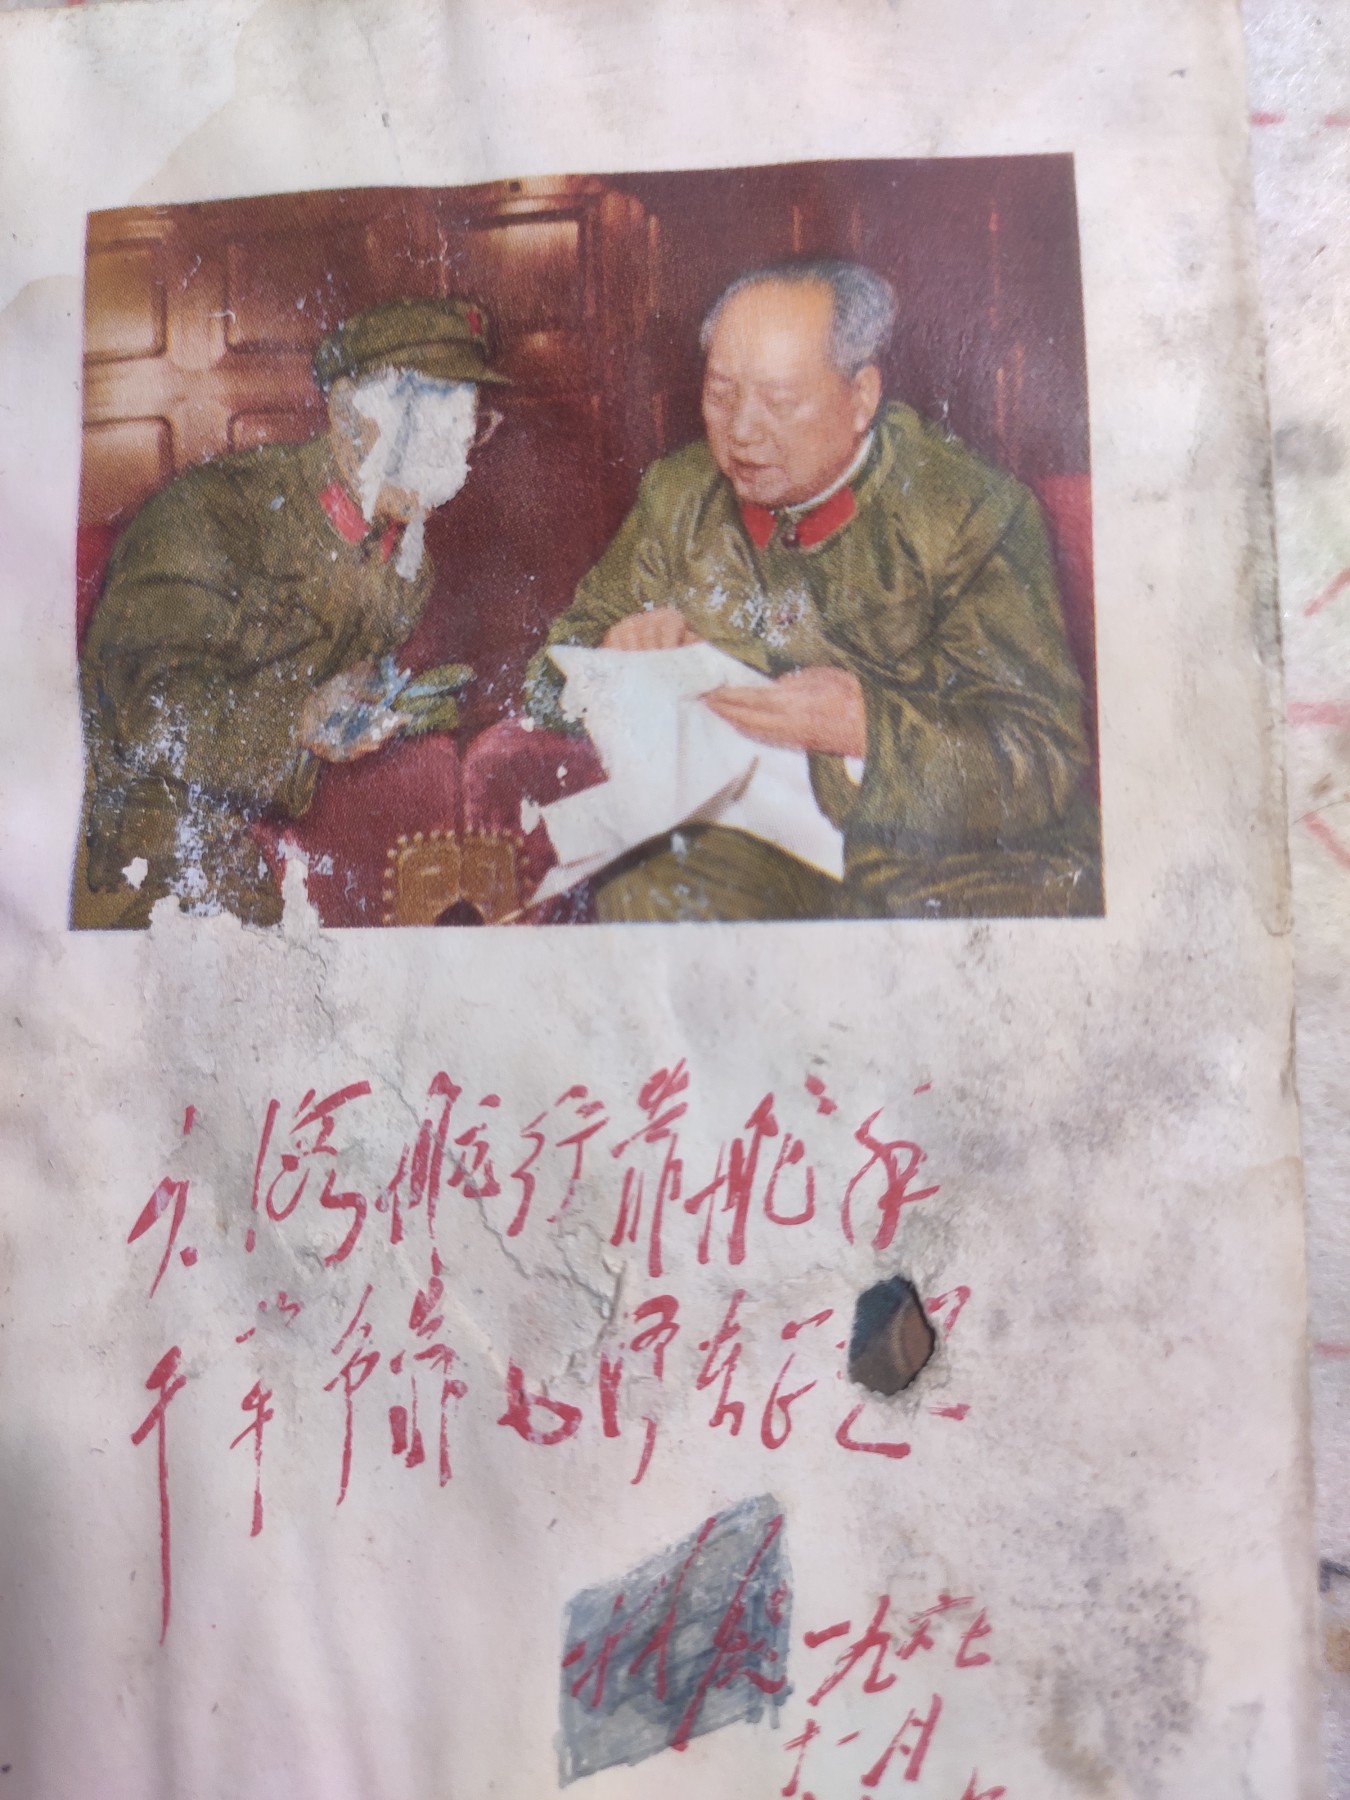 大海航行靠舵手
干革命靠毛泽东思想
林彪 一九六七
十一月